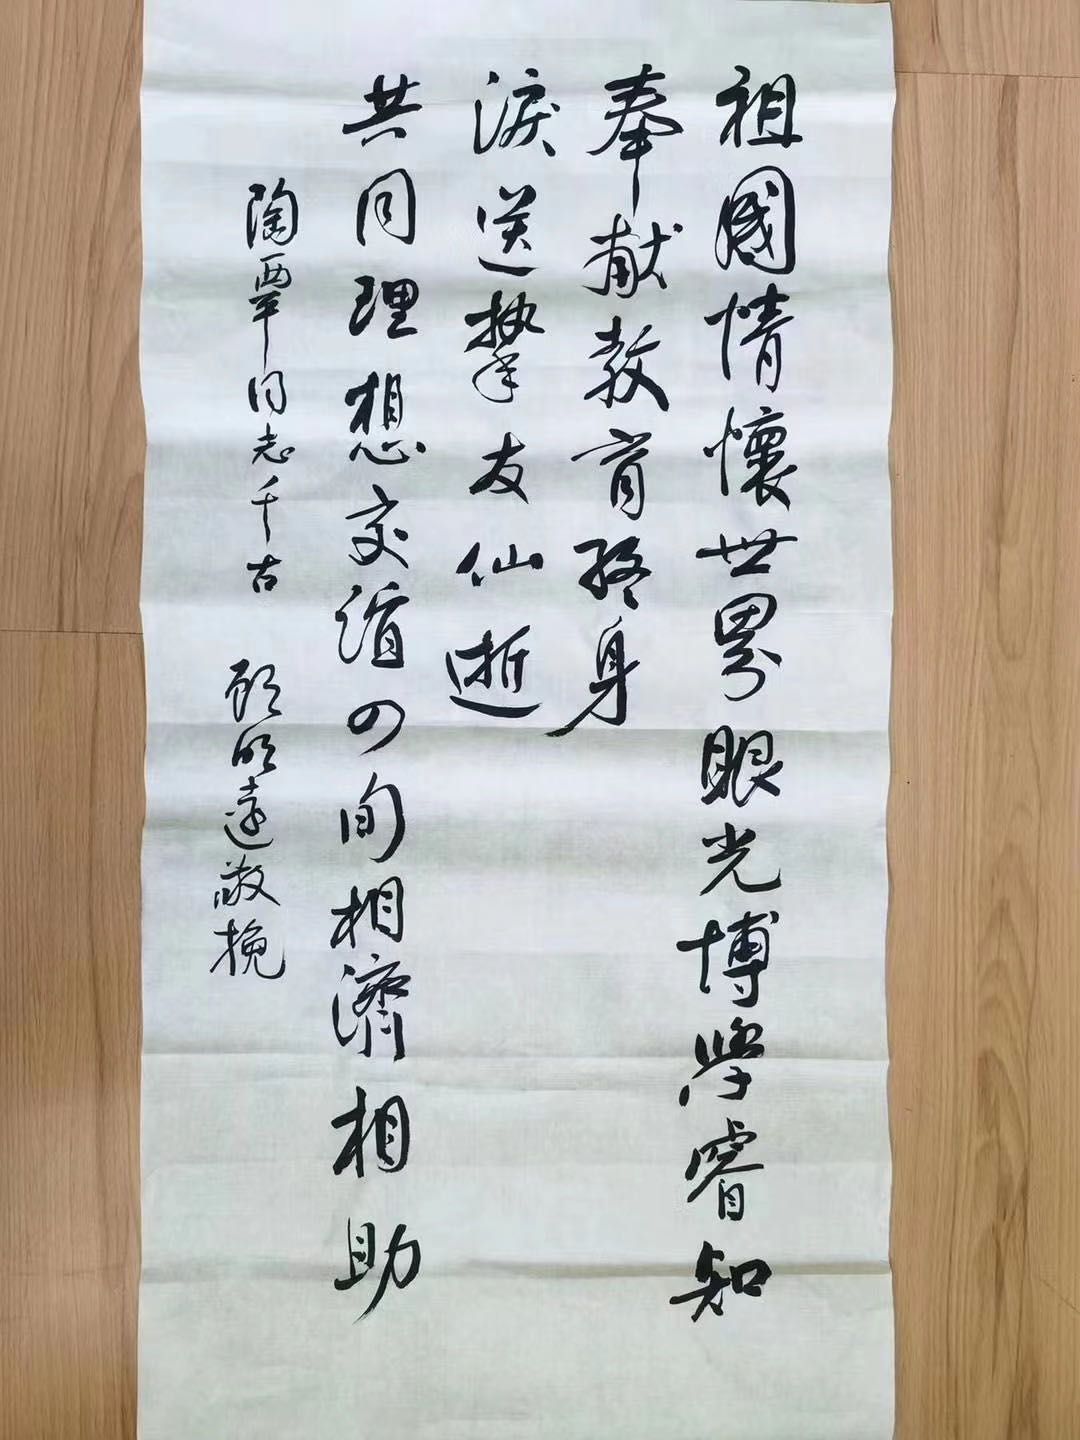 祖國情懷世界眼光博學睿知
奉献教育终身
淚送挚友仙逝
共同理想交道四旬相濟相助
陶西平同志千古 顾明遠敬挽